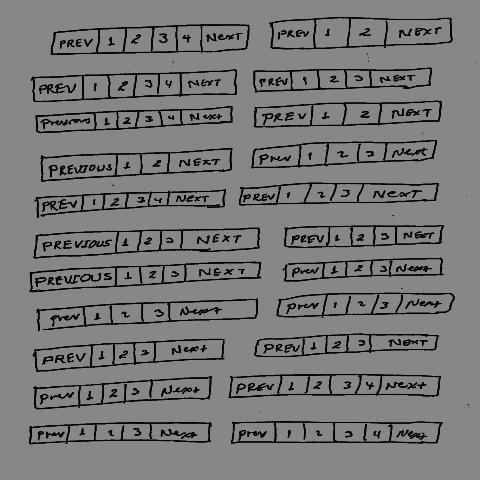 PREV 1 2 3 4 NeXT PREV 1 2 NEXT
PREV 1 2 3 4 NEXT PREV 1 2 3 NEXT
Previous 1 2 3 4 Next PREV 1 2 NEXT
PREVIOUS 1 2 NEXT Prev 1 2 3 Next
PREV 1 2 3 4 NEXT PREV 1 2 3 NexT
PREVIOUS 1 2 3 NEXT PREV 1 2 3 NEXT
PREVIOUS 1 2 3 NEXT Prev 1 2 3 Next
Prev 1 2 3 Next Prev 1 2 3 Next
PREV 1 2 3 Next PREV 1 2 3 NEXT
Prev 1 2 3 Next PREV 1 2 3 4 Next
Prev 1 2 3 Next Prev 1 2 3 4 Next